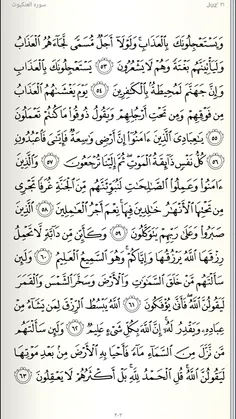 سورة العنكبوت
وَيَسْتَعْجِلُونَكَ بِالْعَذَابِ وَلَوْلَا أَجَلٌ مُسَمًّى لَجَاءَهُمُ الْعَذَابُ
وَلَيَأْتِيَنَّهُمْ بَغْتَةً وَهُمْ لَا يَشْعُرُونَ ٥٣ يَسْتَعْجِلُونَكَ بِالْعَذَابِ
وَإِنَّ جَهَنَّمَ لَمُحِيطَةٌ بِالْكَافِرِينَ ٥٤ يَوْمَ يَغْشَاهُمُ الْعَذَابُ
مِنْ فَوْقِهِمْ وَمِنْ تَحْتِ أَرْجُلِهِمْ وَيَقُولُ ذُوقُوا مَا كُنْتُمْ تَعْمَلُونَ
٥٥ يَا عِبَادِيَ الَّذِينَ ءَامَنُوا إِنَّ أَرْضِي وَاسِعَةٌ فَإِيَّايَ فَاعْبُدُونِ
٥٦ كُلُّ نَفْسٍ ذَائِقَةُ الْمَوْتِ ثُمَّ إِلَيْنَا تُرْجَعُونَ ٥٧ وَالَّذِينَ
ءَامَنُوا وَعَمِلُوا الصَّالِحَاتِ لَنُبَوِّئَنَّهُمْ مِنَ الْجَنَّةِ غُرَفًا تَجْرِي
مِنْ تَحْتِهَا الْأَنْهَارُ خَالِدِينَ فِيهَا نِعْمَ أَجْرُ الْعَامِلِينَ ٥٨ الَّذِينَ
صَبَرُوا وَعَلَى رَبِّهِمْ يَتَوَكَّلُونَ ٥٩ وَكَأَيِّنْ مِنْ دَابَّةٍ لَا تَحْمِلُ
رِزْقَهَا اللَّهُ يَرْزُقُهَا وَإِيَّاكُمْ وَهُوَ السَّمِيعُ الْعَلِيمُ ٦٠ وَلَئِنْ
سَأَلْتَهُمْ مَنْ خَلَقَ السَّمَاوَاتِ وَالْأَرْضَ وَسَخَّرَ الشَّمْسَ وَالْقَمَرَ
لَيَقُولُنَّ اللَّهُ فَأَنَّى يُؤْفَكُونَ ٦١ اللَّهُ يَبْسُطُ الرِّزْقَ لِمَنْ يَشَاءُ مِنْ
عِبَادِهِ وَيَقْدِرُ لَهُ إِنَّ اللَّهَ بِكُلِّ شَيْءٍ عَلِيمٌ ٦٢ وَلَئِنْ سَأَلْتَهُمْ
مَنْ نَزَّلَ مِنَ السَّمَاءِ مَاءً فَأَحْيَا بِهِ الْأَرْضَ مِنْ بَعْدِ مَوْتِهَا
لَيَقُولُنَّ اللَّهُ قُلِ الْحَمْدُ لِلَّهِ بَلْ أَكْثَرُهُمْ لَا يَعْقِلُونَ ٦٣